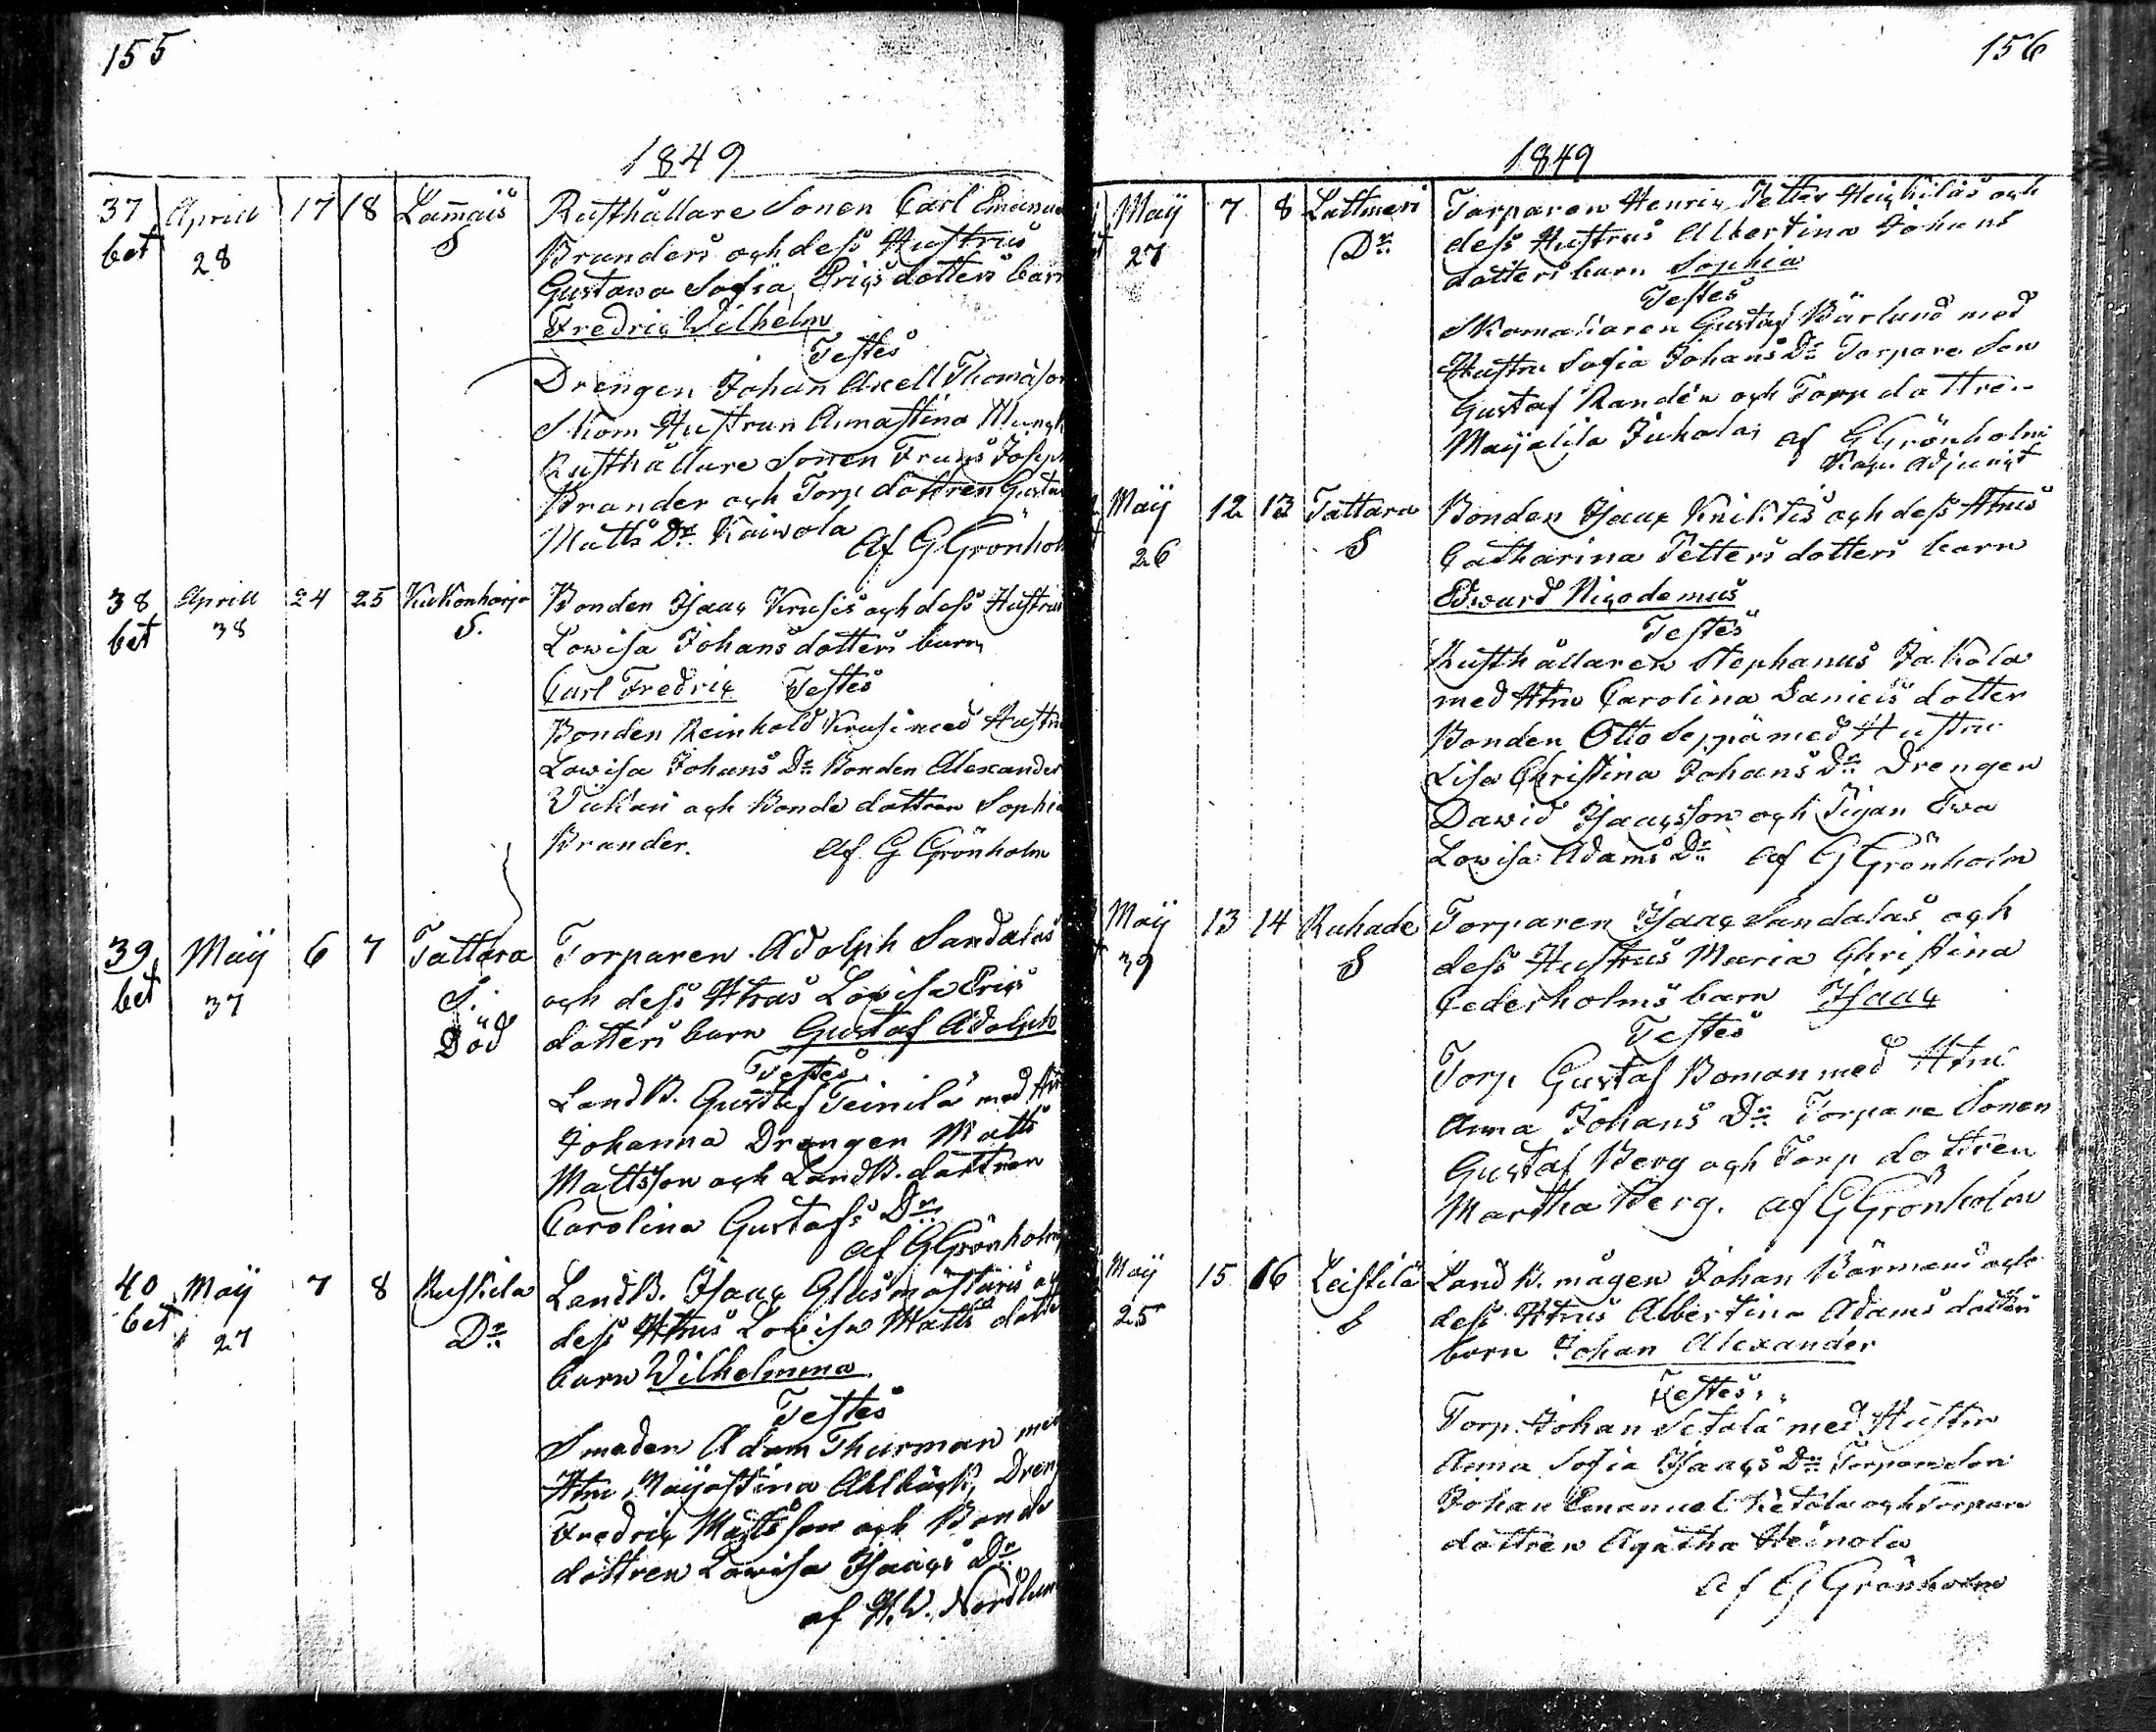 155
1849
37 Aprill 17 18 Lamais Rusthållare Sonen Carl Emanu
bet 28 S Branders och dess Hustrus
Gustava Sofia Erics dotters barn
Fredric Wilhelm
Testes
Drengen Johan Axell Thomasson
Skom Hustrun Annastina
Rusthållare Sonen Frans Joseph
Brander och Torp dottren Gusta
Matts Dr Kaiwola
Af G Grönhol
38 Aprill 24 25 Kukonharja Bonden Isaac Krusis och dess Hustrus
bet 38 S. Lowisa Johans dotters barn
Carl Fredric Testes
Bonden Reinhold Krusi med Hustru
Lowisa Johans Dr Bonden Alexander
och Bonde dottren Sophia
Brander. Af G Grönholm
39 Maÿ 6 7 Tattara Torparen Adolph Sandalas
bet 37 S. och dess Htrus Lovisa Erics
Död dotters barn Gustaf Adolph
Testes
Land B. Gustaf Teinilä med
Johanna Drengen Matts
Mattsson och Land B. dottren
Carolina Gustafs Dr
af G Grönholm
40 Maÿ 7 8 Ruskila Land B. Isaac Glasmästaris
bet 27 Dr dess Htrus Lovisa Matts dotte
barn Wilhelmina
Testes
Smeden Adam Thurman med
Htru Maijastina Ahlbäck, Dreng
Fredric Mattsson och Bonde
dottren Lowisa Isaacs Dr
af H.W. Nordlun
156
1849
Maÿ 7 8 Lattmeri Torparen Henric Petter Heickiläs och
27 Dr dess Hustrus Albertina Johans
dotters barn Sophia
Testes
Skomakaren Gustaf Bärlund med
Hustru Sofia Johans Dr Torpare Son
Gustaf Randén och Torp dottre.
Maijalisa Juhala, af G Grönholm
Adjunct
Maÿ 12 13 Tattara Bonden Isaac Kniktis och dess Htrus
26 S Catharina Petters dotters barn
Edward Nicodemus
Testes
Rusthållaren Stephanus Jakola
med Htru Carolina Daniels dotter
Bonden Otto Seppä med Hustru
Lisa Christina Johans Dr Drengen
Dawid Isaacsson och Pigan Eva
Lovisa Adams Dr af G Grönholm
Maÿ 13 14 Ruhade Torparen Isaac Sandalas och
39 S dess Hustrus Maria Christina
Cederholms barn Isaac
Testes
Torp Gustaf Boman med Htru
Anna Johans Dr Torpare Sonen
Gustaf Berg och Torp dottren
Martha Berg. af G Grönholm
Maÿ 15 16 Leistilä Land B. mågen Johan Bärmans och
25 S dess Htrus Albertina Adams dotters
barn Johan Alexander
Testes
Torp. Johan Setälä med Hustru
Anna Sofia Isaacs Dr Torpare Son
Johan Emanuel Ketola och Torpare
dottren Agatha Heinola
af G Grönholm